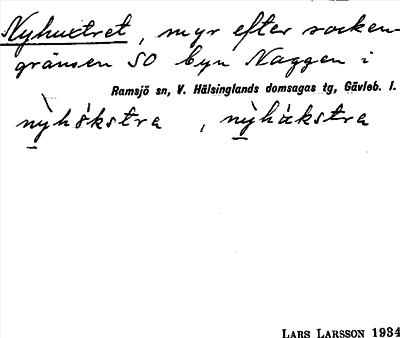 Nyhuxtret, myr efter socken-
gränsen SO byn Naggen i
Ramsjö sn, V. Hälsinglands domsagas tg, Gävleb. l.
nỳhòkstra, nỳhàkstra
LARS LARSSON 1934